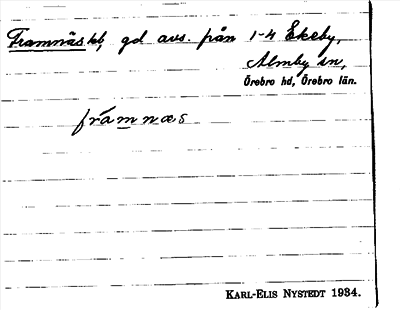 Framnäs hl, gd avs. från 1-4 Ekeby,
Almby sn,
Örebro hd, Örebro län.
frámnæs
KARL-ELIS NYSTEDT 1934.